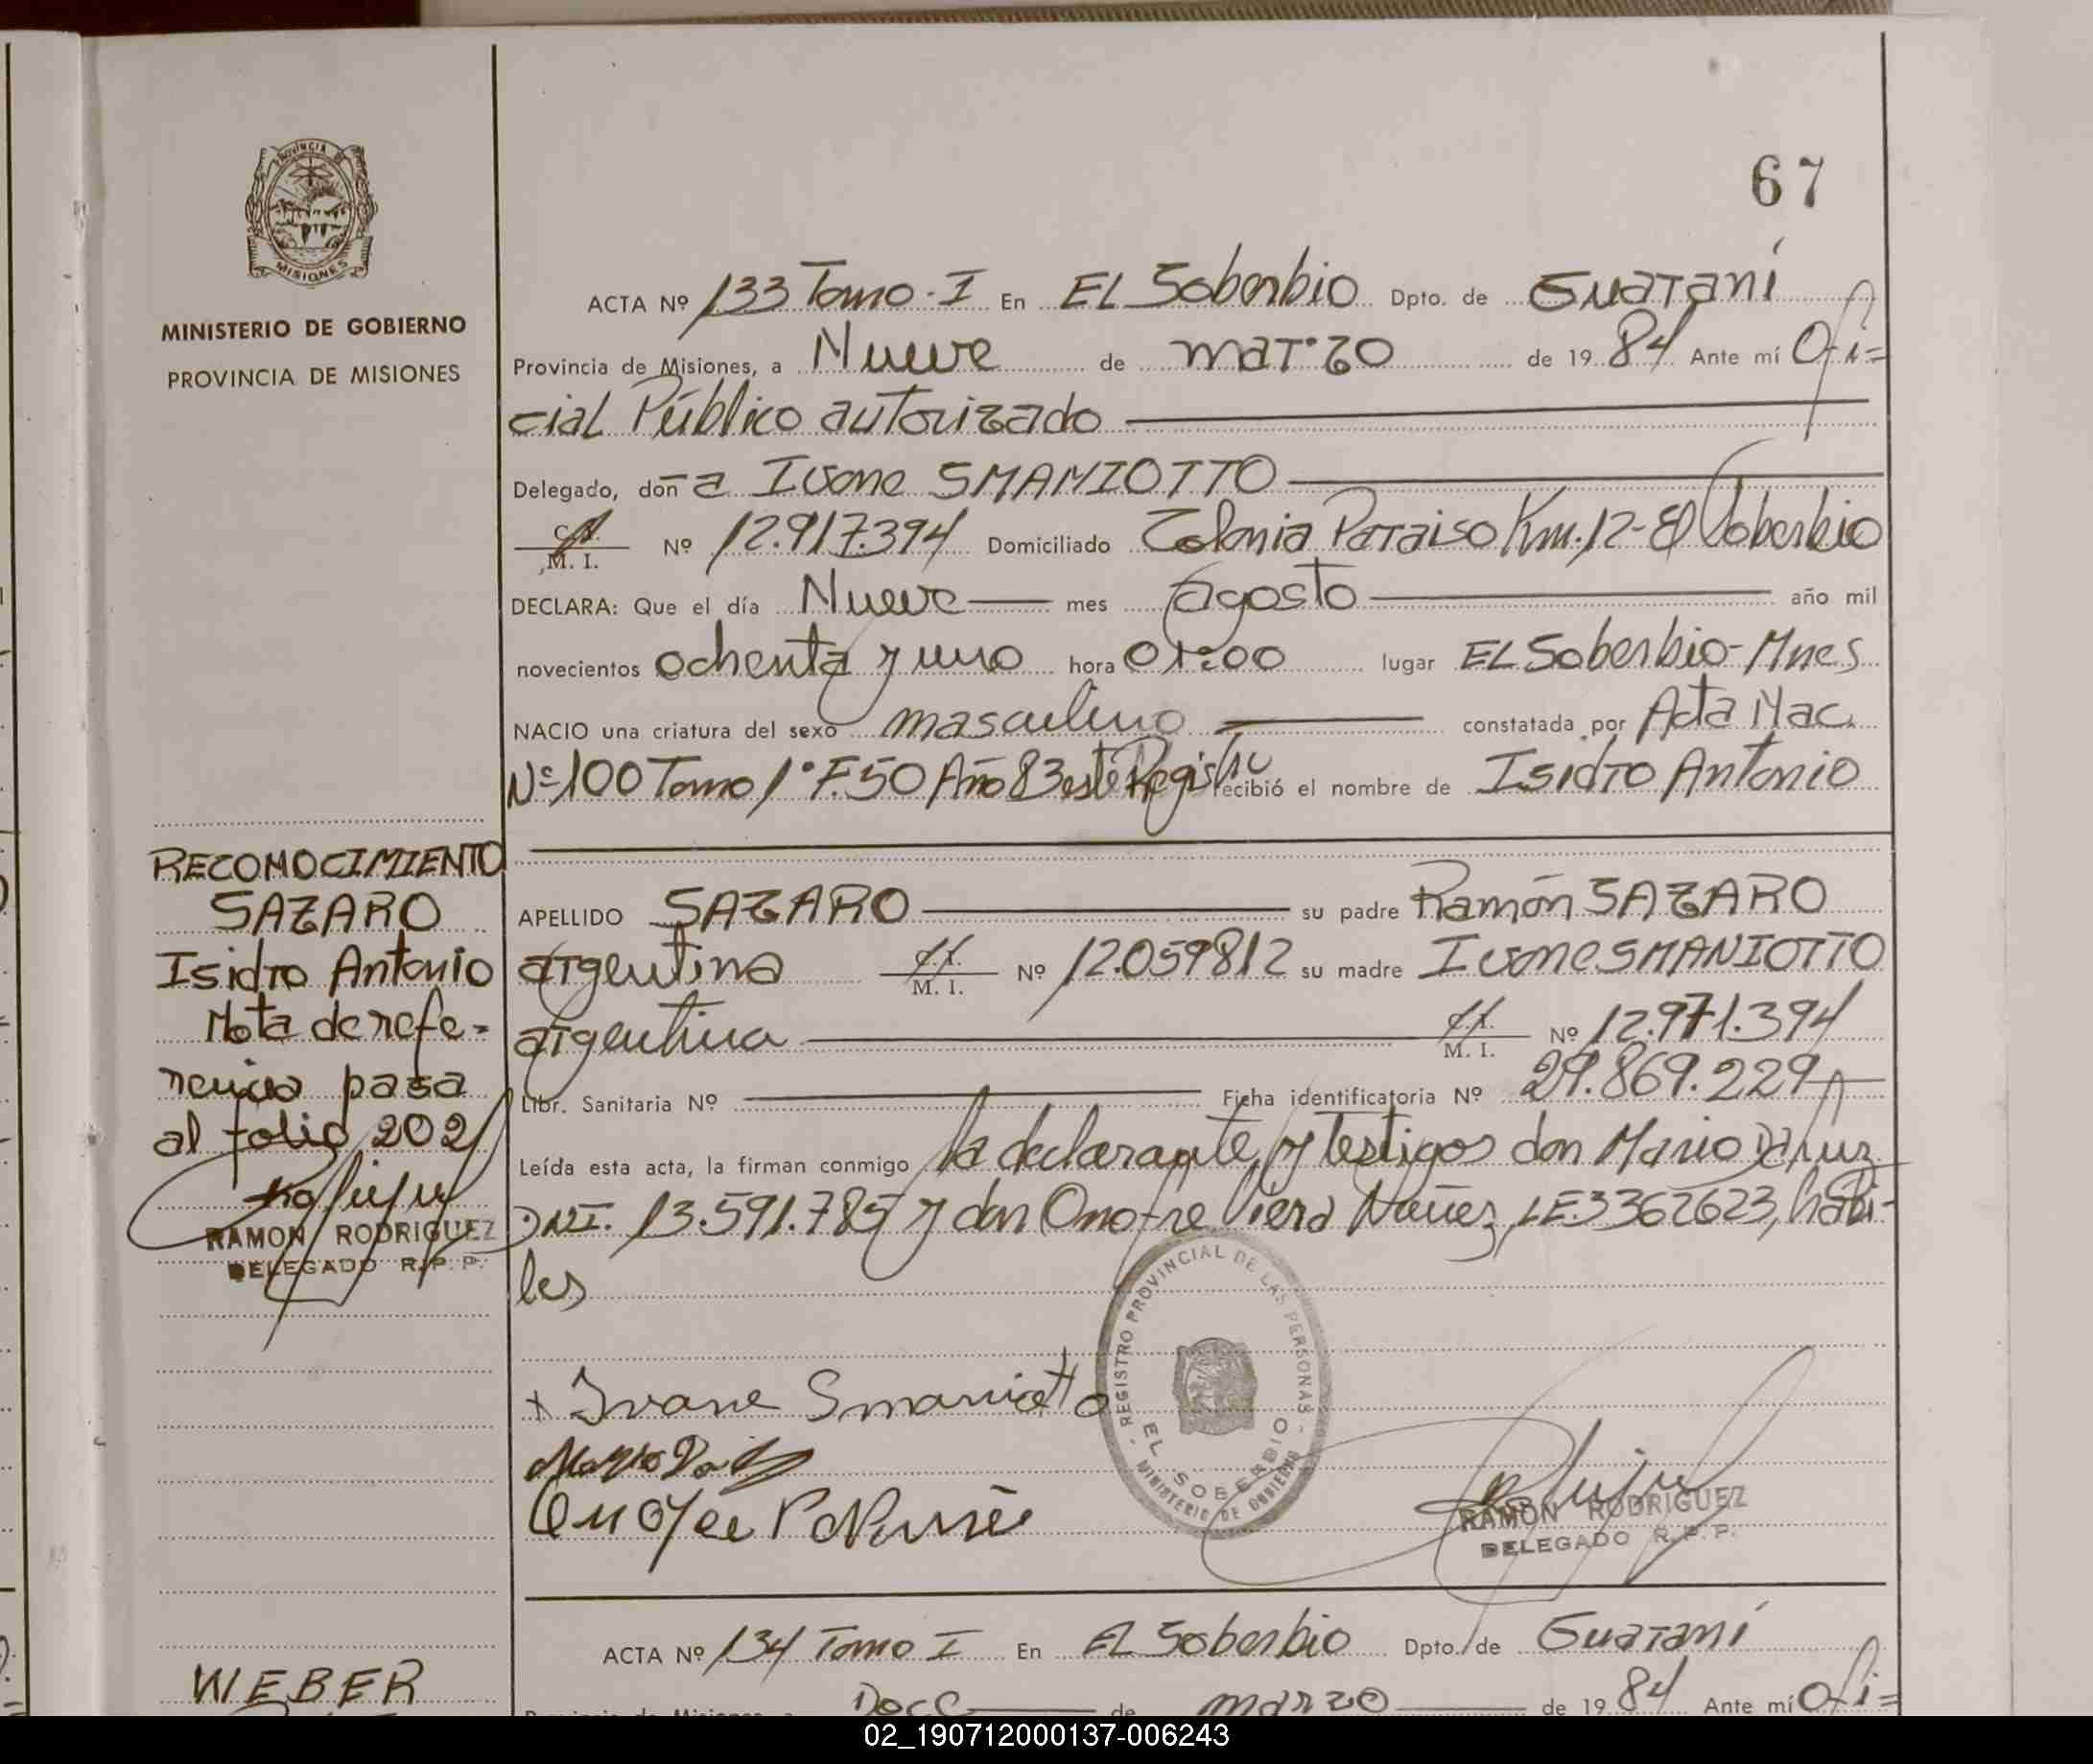 67
PROVINCIA DE
MISIONES
MINISTERIO DE GOBIERNO
PROVINCIA DE MISIONES
ACTA Nº 133 Tomo-I En EL Soberbio Dpto. de Guaraní
Provincia de Misiones, a Nueve de marzo de 1984 Ante mí Ofi=
cial Público autorizado
Delegado, doña Ivone SMANIOTTO
C.I.
M. I. Nº 12.917.394 Domiciliado Colonia Paraiso Km.12-El Soberbio
DECLARA: Que el día Nueve mes agosto año mil
novecientos ochenta y uno hora 01:00 lugar EL Soberbio-Mnes
NACIO una criatura del sexo masculino constatada por Acta Nac.
Nº100 Tomo 1º F.50 Año 83 este Registro recibió el nombre de Isidro Antonio
APELLIDO SAZARO su padre Ramón SAZARO
argentino C.I.
M. I. Nº 12.059812 su madre Ivone SMANIOTTO
argentina C.I.
M. I. Nº 12.971.394
Libr. Sanitaria Nº Ficha identificatoria Nº 29.869.229
Leída esta acta, la firman conmigo la declarante y testigos don Mario Da Luz
DNI. 13.591.785 y don Onofre Viera Nuñez, LE3362623, hábi-
les
RECONOCIMIENTO
SAZARO
Isidro Antonio
Nota de refe=
rencia pasa
al folio 202
RAMON RODRIGUEZ
DELEGADO R. P. P.
Ivone Smaniotto
- REGISTRO PROVINCIAL DE LAS PERSONAS -
EL SOBERBIO
MINISTERIO DE GOBIERNO
RAMON RODRIGUEZ
DELEGADO R. P. P.
ACTA Nº 134 Tomo I En EL Soberbio Dpto. de Guaraní
Provincia de Misiones, a Doce de marzo de 1984 Ante mí Ofi=
WEBER
02_190712000137-006243